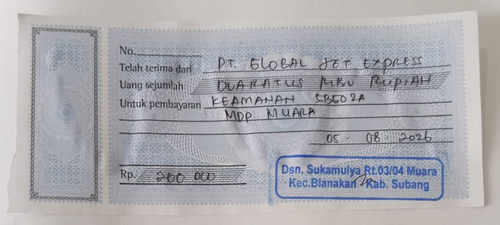 No.
Telah terima dari PT. GLOBAL JET EXPRESS
Uang sejumlah DUARATUS RIBU RUPIAH
Untuk pembayaran KEAMANAN SBG02A
MDP MUARA
05 - 08 - 2026
Rp. 200 000
Dsn. Sukamulya Rt.03/04 Muara
Kec.Blanakan Kab. Subang